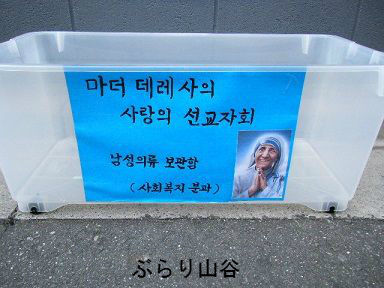 마더 데레사의
사랑의 선교자회
남성의류 보관함
(사회복지 분과)
ぶらり山谷